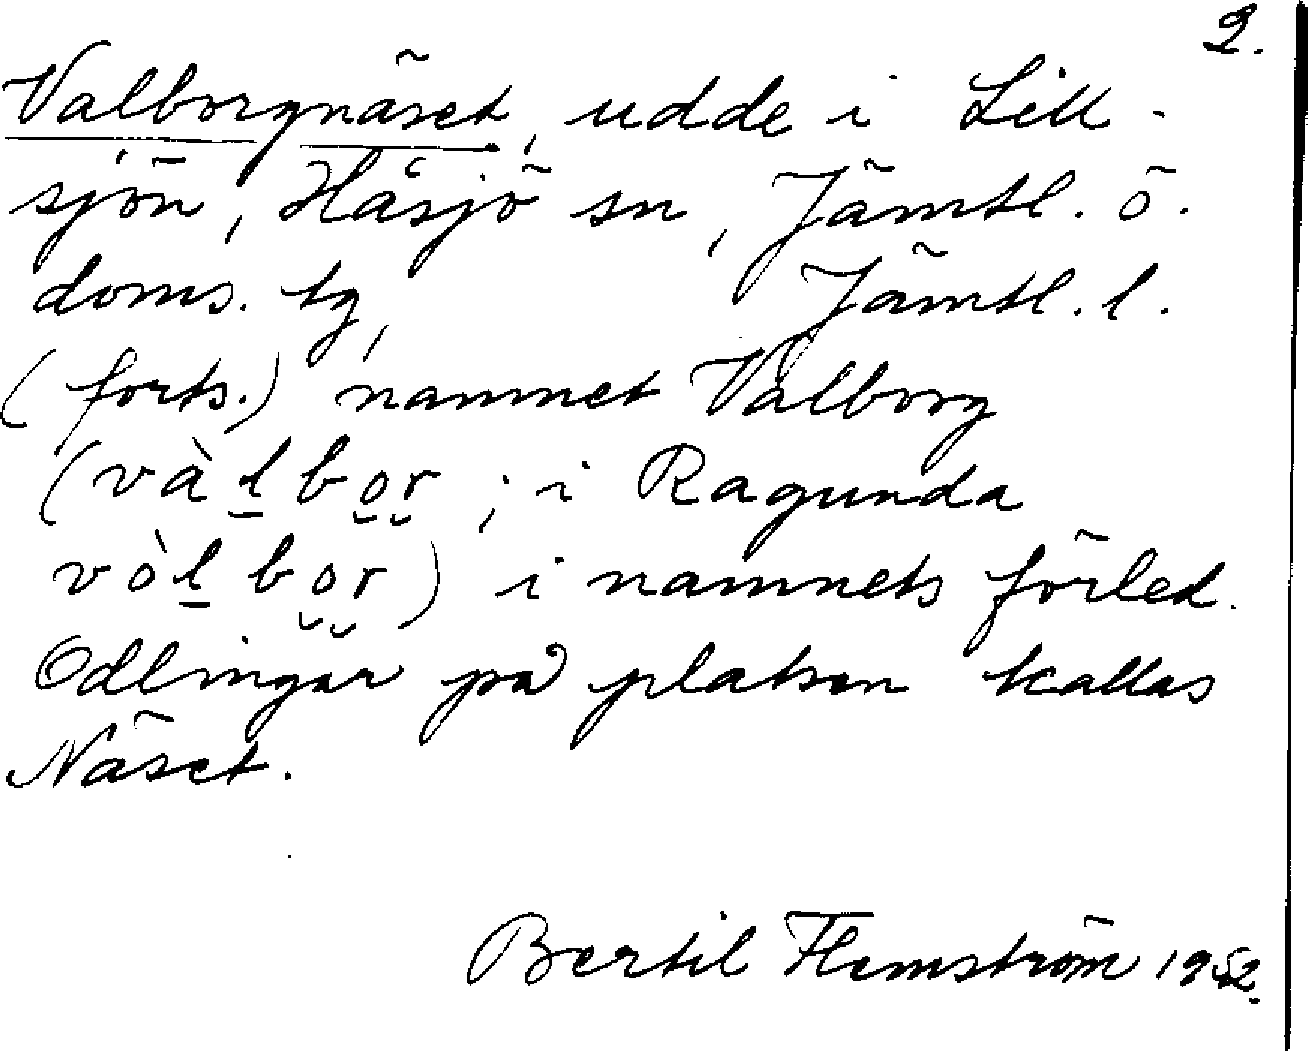 2.
Valborgnäset, udde i Lill-
sjön, Håsjö sn, Jämtl. ö.
doms. tg, Jämtl. l.
(forts.) namnet Valborg
(vàl̲bo̮r̮; i Ragunda
vòl̲bo̮r̮) i namnets förled.
Odlingar på platsen kallas
Näset.
Bertil Flemström 1952.